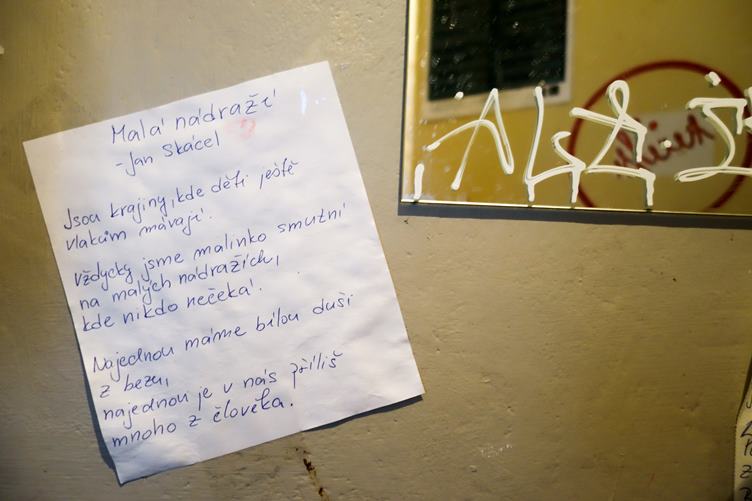 Malá nádraží
- Jan Skácel
Jsou krajiny, kde děti ještě
vlakům mávají.
Vždycky jsme malinko smutní
na malých nádražích,
kde nikdo nečeká.
Najednou máme bílou duši
z bezu,
najednou je v nás příliš
mnoho z člověka.